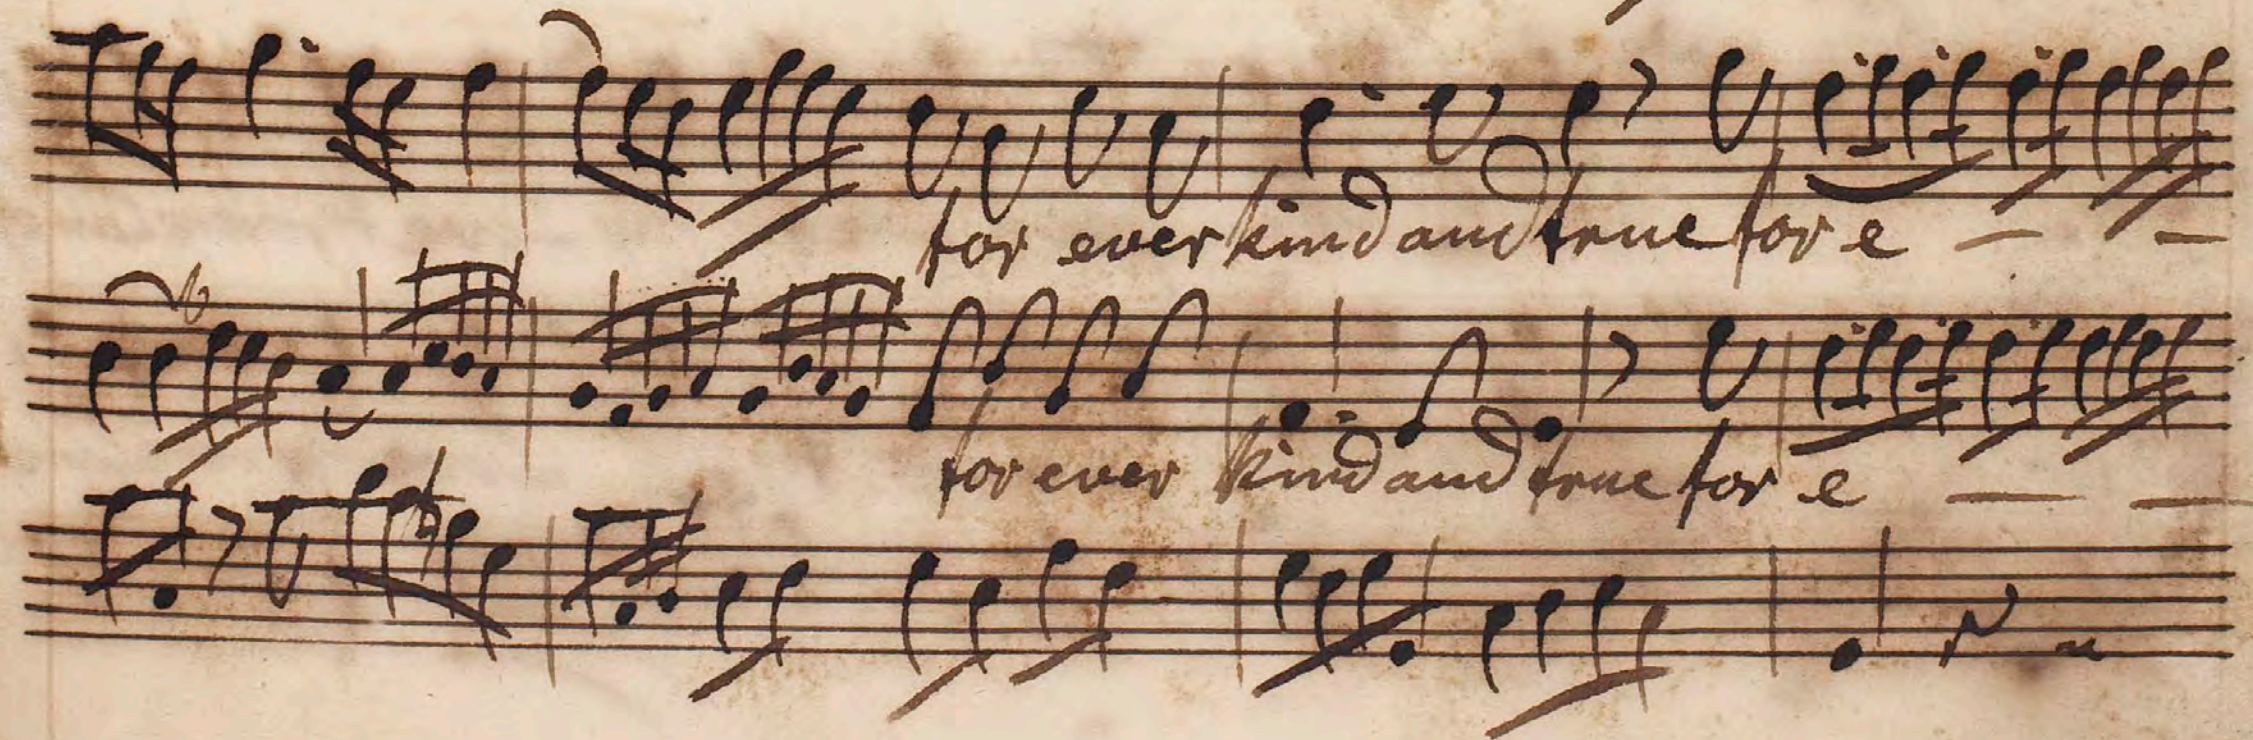 for ever kind and true for e — —
for ever kind and true for e — —